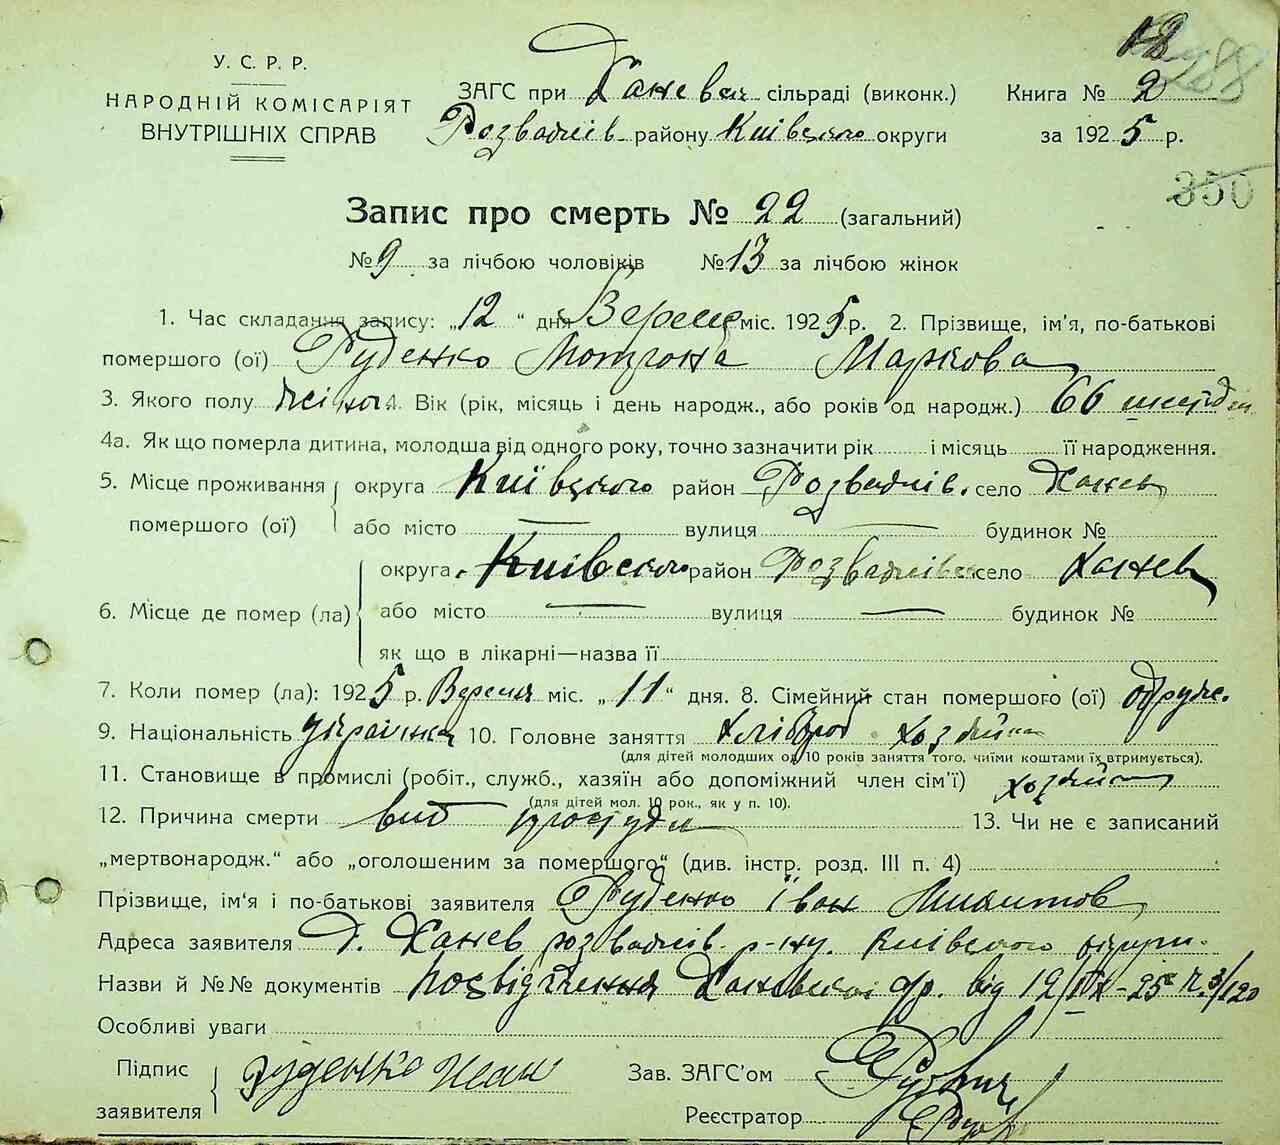 18
288
У. С. Р. Р.
НАРОДНІЙ КОМІСАРІЯТ
ВНУТРІШНІХ СПРАВ
ЗАГС при Ханевец. сільраді (виконк.) Книга № 2
Розважів. району Київського округи за 1925 р.
350
Запис про смерть № 22 (загальний)
№ 9 за лічбою чоловіків № 13 за лічбою жінок
1. Час складання запису: „12“ дня Верес міс. 1925 р. 2. Прізвище, ім’я, по-батькові
помершого (ої) Руденко Мотрона Маркова
3. Якого полу жіноч. 4. Вік (рік, місяць і день народж., або років од народж.) 66
4а. Як що померла дитина, молодша від одного року, точно зазначити рік і місяць її народження.
5. Місце проживання округа Київського район Розважів. село Ханев
помершого (ої) або місто — вулиця — будинок №
округа Київського район Розважівск село Ханев
6. Місце де помер (ла) або місто — вулиця — будинок №
як що в лікарні—назва її
7. Коли помер (ла): 1925 р. Вересня міс. „11“ дня. 8. Сімейний стан помершого (ої) одруже.
9. Національність українка 10. Головне заняття хлібороб. хозяйка
(для дітей молодших од 10 років заняття того, чиїми коштами їх втримується).
11. Становище в промислі (робіт., служб., хазяїн або допоміжний член сім’ї) хозяйка
(для дітей мол. 10 рок., як у п. 10).
12. Причина смерти від простуди 13. Чи не є записаний
„мертвонародж.“ або „оголошеним за помершого“ (див. інстр. розд. III п. 4)
Прізвище, ім’я і по-батькові заявителя Руденко Іван
Адреса заявителя д. Ханев розважів. р-ну. Київського округи.
Назви й №№ документів посвідчення Ханевської с/р. від 12/IX-25р ч. 3/120
Особливі уваги
Підпис
заявителя Руденко Иван Зав. ЗАГС’ом
Реєстратор